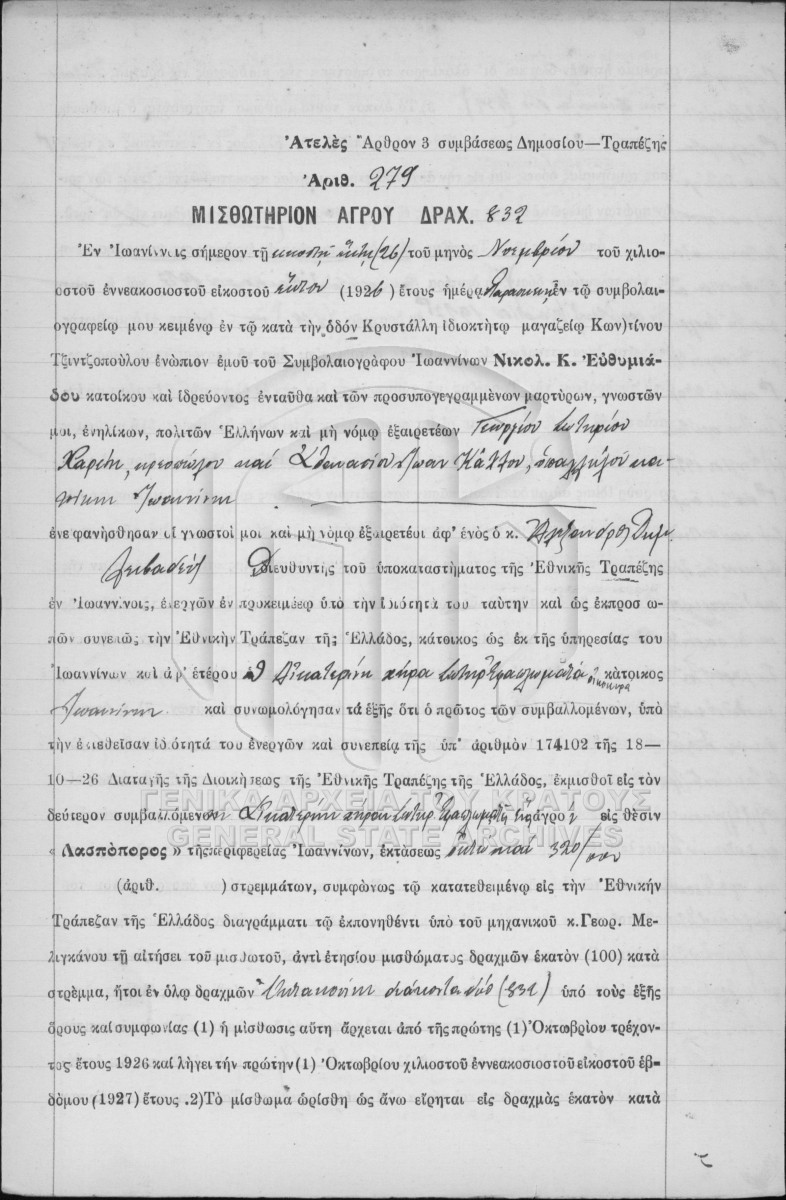 Ἀτελὲς Ἄρθρον 3 συμβάσεως Δημοσίου—Τραπέζης
Ἀριθ. 279
ΜΙΣΘΩΤΗΡΙΟΝ ΑΓΡΟΥ ΔΡΑΧ. 832
Ἐν Ἰωαννίνοις σήμερον τῇ εἰκοστῇ ἕκτῃ (26) τοῦ μηνὸς Νοεμβρίου τοῦ χιλιο-
οστοῦ ἐννεακοσιοστοῦ εἰκοστοῦ ἕκτου (1926) ἔτους ἡμέρᾳ Παρασκευῇ ἐν τῷ συμβολαι-
ογραφείῳ μου κειμένῳ ἐν τῷ κατὰ τὴν ὁδὸν Κρυστάλλη ἰδιοκτήτῳ μαγαζείῳ Κων)τίνου
Τζιντζοπούλου ἐνώπιον ἐμοῦ τοῦ Συμβολαιογράφου Ἰωαννίνων Νικολ. Κ. Εὐθυμιά-
δου κατοίκου καὶ ἱδρεύοντος ἐνταῦθα καὶ τῶν προσυπογεγραμμένων μαρτύρων, γνωστῶν
μοι, ἐνηλίκων, πολιτῶν Ἑλλήνων καὶ μὴ νόμῳ ἐξαιρετέων Γεωργίου Σωτηρίου
κρεοπώλου καὶ Ἀθανασίου Ἰωαν. ὑπαλλήλου κα-
τοίκων Ἰωαννίνων
ἐνεφανήσθησαν οἱ γνωστοί μοι καὶ μὴ νόμῳ ἐξαιρετέοι ἀφ' ἑνὸς ὁ κ. Ἀλέξανδρος Δημ.
Λειβαδεὺς Διευθυντὴς τοῦ ὑποκαταστήματος τῆς Ἐθνικῆς Τραπέζης
ἐν Ἰωαννίνοις, ἐνεργῶν ἐν προκειμένῳ ὑπὸ τὴν ἰδιότητά του ταύτην καὶ ὡς ἐκπροσω-
πῶν συνεπῶς τὴν Ἐθνικὴν Τράπεζαν τῆς Ἑλλάδος, κάτοικος ὡς ἐκ τῆς ὑπηρεσίας του
Ἰωαννίνων καὶ ἀφ' ἑτέρου ἡ Αἰκατερίνη χήρα Σωτηρ. κάτοικος
Ἰωαννίνων καὶ συνωμολόγησαν τὰ ἑξῆς ὅτι ὁ πρῶτος τῶν συμβαλλομένων, ὑπὸ
τὴν ἐκτεθεῖσαν ἰδιότητά του ἐνεργῶν καὶ συνεπείᾳ τῆς ὑπ' ἀριθμὸν 174102 τῆς 18—
10—26 Διαταγῆς τῆς Διοικήσεως τῆς Ἐθνικῆς Τραπέζης τῆς Ἑλλάδος, ἐκμισθοῖ εἰς τὸν
δεύτερον συμβαλλόμενον Αἰκατερίνην χήραν Σωτηρ. ἀγρὸν εἰς θέσιν
« Λασπόπορος » τῆς περιφερείας Ἰωαννίνων, ἐκτάσεως ὀκτὼ καὶ 320/000
(ἀριθ. ) στρεμμάτων, συμφώνως τῷ κατατεθειμένῳ εἰς τὴν Ἐθνικὴν
Τράπεζαν τῆς Ἑλλάδος διαγράμματι τῷ ἐκπονηθέντι ὑπὸ τοῦ μηχανικοῦ κ. Γεωρ. Με-
λιγκάνου τῇ αἰτήσει τοῦ μισθωτοῦ, ἀντὶ ἐτησίου μισθώματος δραχμῶν ἑκατὸν (100) κατὰ
στρέμμα, ἤτοι ἐν ὅλῳ δραχμῶν ὀκτακοσίων τριάκοντα δύο (832) ὑπὸ τοὺς ἑξῆς
ὅρους καὶ συμφωνίας (1) ἡ μίσθωσις αὕτη ἄρχεται ἀπὸ τῆς πρώτης (1) Ὀκτωβρίου τρέχον-
τος ἔτους 1926 καὶ λήγει τὴν πρώτην (1) Ὀκτωβρίου χιλιοστοῦ ἐννεακοσιοστοῦ εἰκοστοῦ ἑβ-
δόμου (1927) ἔτους .2)Τὸ μίσθωμα ὡρίσθη ὡς ἄνω εἴρηται εἰς δραχμὰς ἑκατὸν κατὰ
ΓΕΝΙΚΑ ΑΡΧΕΙΑ ΤΟΥ ΚΡΑΤΟΥΣ
GENERAL STATE ARCHIVES